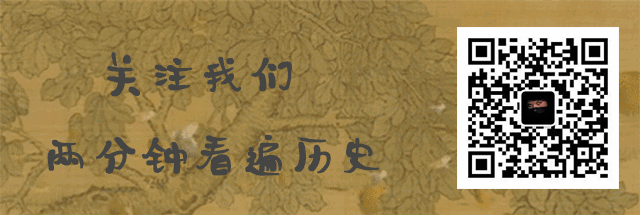 关注我们
两分钟看遍历史